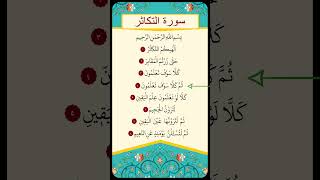 سورة التكاثر
بِسْمِ اللَّهِ الرَّحْمَٰنِ الرَّحِيمِ
أَلْهَىٰكُمُ التَّكَاثُرُ ١
حَتَّىٰ زُرْتُمُ الْمَقَابِرَ ٢
كَلَّا سَوْفَ تَعْلَمُونَ ٣
ثُمَّ كَلَّا سَوْفَ تَعْلَمُونَ ٤
كَلَّا لَوْ تَعْلَمُونَ عِلْمَ الْيَقِينِ ٥
لَتَرَوُنَّ الْجَحِيمَ ٦
ثُمَّ لَتَرَوُنَّهَا عَيْنَ الْيَقِينِ ٧
ثُمَّ لَتُسْأَلُنَّ يَوْمَئِذٍ عَنِ النَّعِيمِ ٨